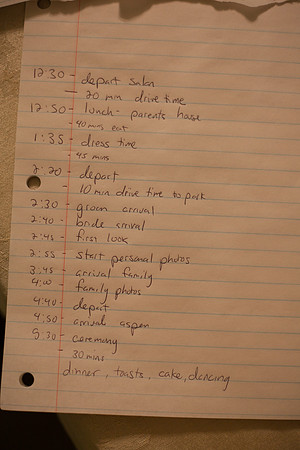 12:30 - depart salon
- 20 min drive time
12:50 - lunch - parents house
- 40 mins eat
1:35 - dress time
- 45 mins
2:20 - depart
10 min drive time to park
2:30 - groom arrival
2:40 - bride arrival
2:45 - first look
2:55 - start personal photos
3:45 - arrival family
4:00 - family photos
4:40 - depart
4:50 - arrival aspen
5:30 - ceremony
- 30 mins
dinner, toasts, cake, dancing